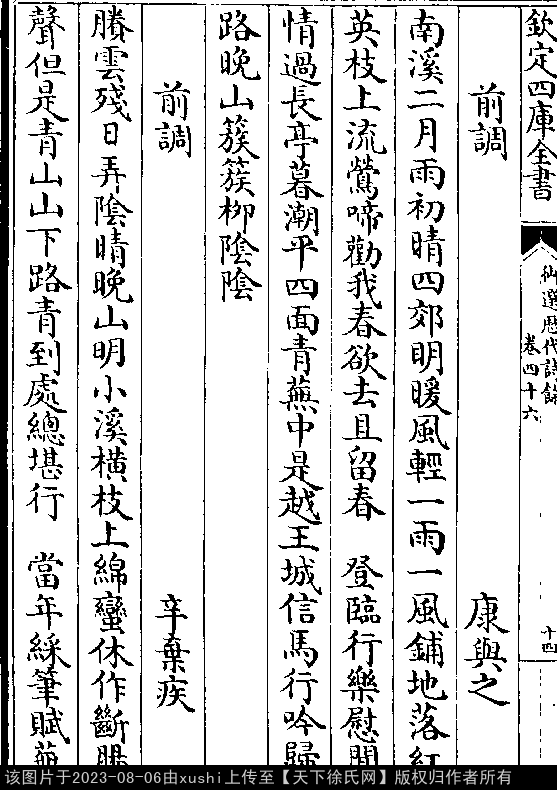 欽定四庫全書
御選歷代詩餘
卷四十六
十四
前調 康與之
南溪二月雨初晴四郊明暖風輕一雨一風鋪地落紅
英枝上流鶯啼勸我春欲去且留春 登臨行樂慰閒
情過長亭暮潮平四面青蕪中是越王城信馬行吟歸
路晚山簇簇柳陰陰
前調 辛棄疾
賸雲殘日弄陰晴晚山明小溪橫枝上綿蠻休作斷腸
聲但是青山山下路青到處總堪行 當年綵筆賦蕪
该图片于2023-08-06由xushi上传至【天下徐氏网】版权归作者所有